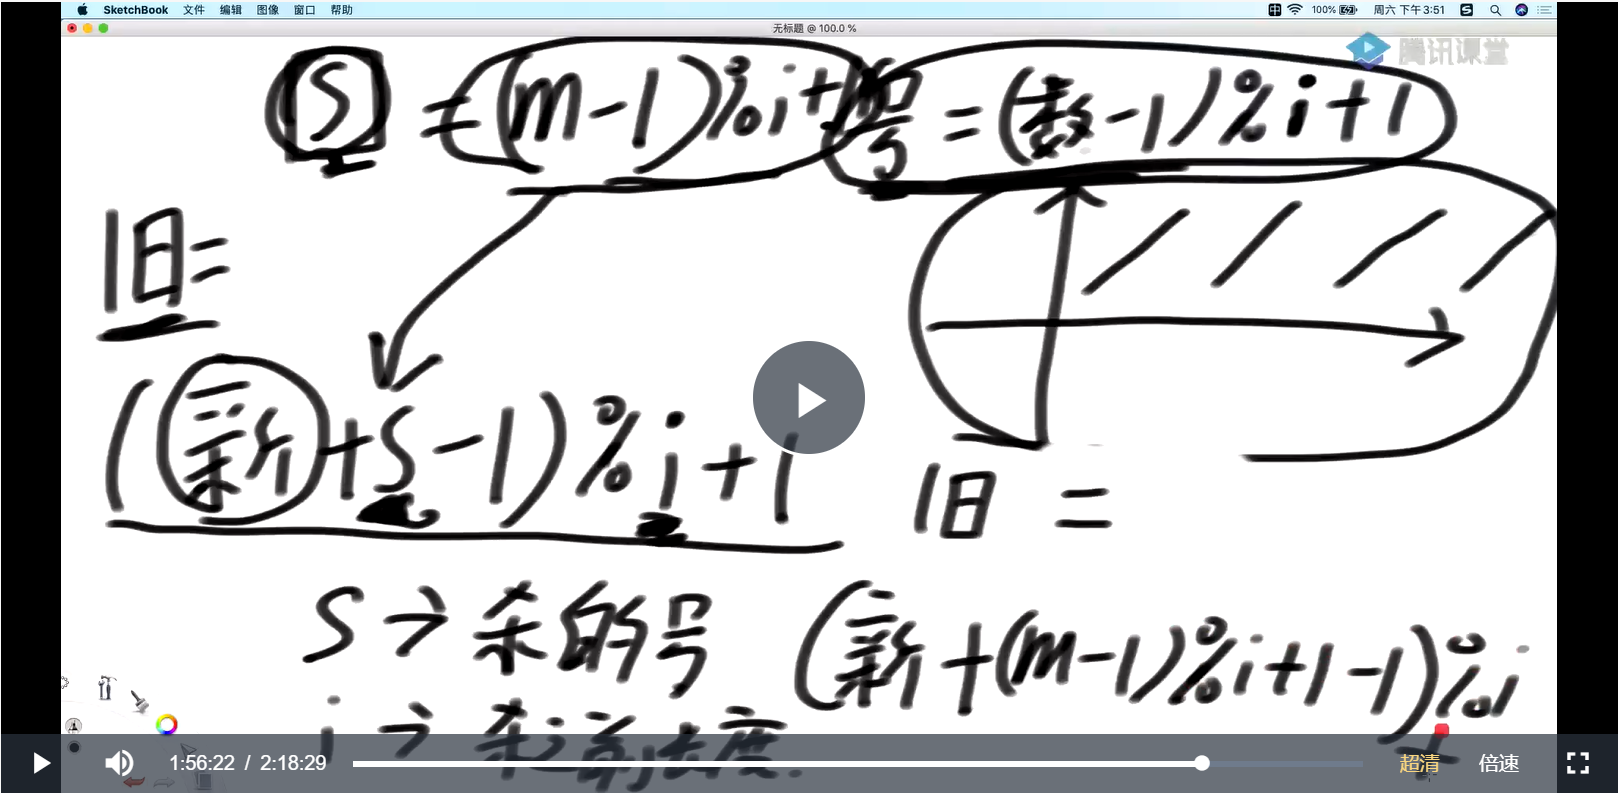 SketchBook 文件 编辑 图像 窗口 帮助 100% 周六 下午3:51
无标题 @ 100.0 %
腾讯课堂
S = (m-1)%i+1
号 = (数-1)%i+1
旧=
(新+S-1)%i+1
旧 =
S→杀的号
(新+(m-1)%i+1-1)%i+
i→杀之前长度.
1:56:22 / 2:18:29 超清 倍速